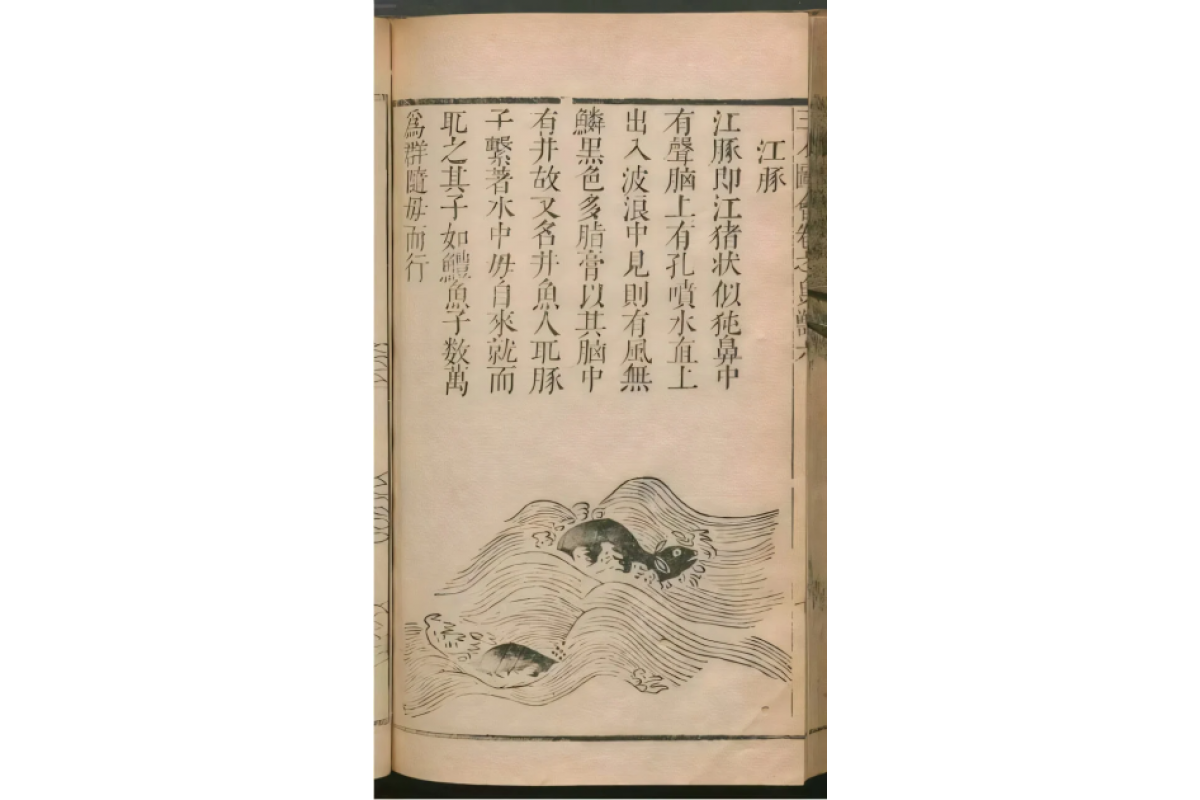 江豚
江豚即江猪状似㹠鼻中
有聲腦上有孔噴水直上
出入波浪中見則有風無
鱗黒色多脂膏以其腦中
有井故又名井魚人取豚
子繫著水中母自來就而
取之其子如鱧魚子数萬
為群隨母而行